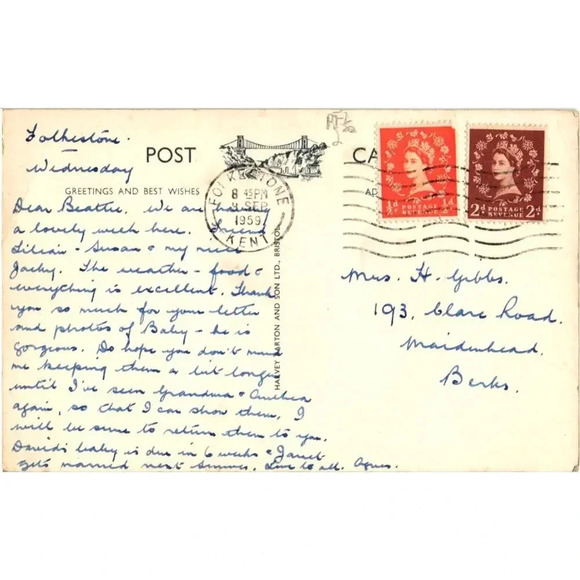 Folkestone.
Wednesday
POST CA
GREETINGS AND BEST WISHES
AD
FOLKESTONE
8 45PM
SEP
1959
KENT
½d
POSTAGE
REVENUE
2d POSTAGE REVENUE 2d
HARVEY BARTON AND SON LTD., BRISTOL
Dear Beattie, We are having
a lovely week here. Friend
Lilian - Susan & my niece
Jacky. The weather - food &
everything is excellent. Thank
you so much for your letter
and photos of Baby - he is
gorgeous. Do hope you don't mind
me keeping them a bit longer
until I've seen Grandma &
again, so that I can show them. I
will be sure to return them to you.
David's baby is due in 6 weeks & Janet
gets married next Summer. Love to all. Agnes.
Mrs. H. Gibbs.
193, Clare Road.
Maidenhead.
Berks.